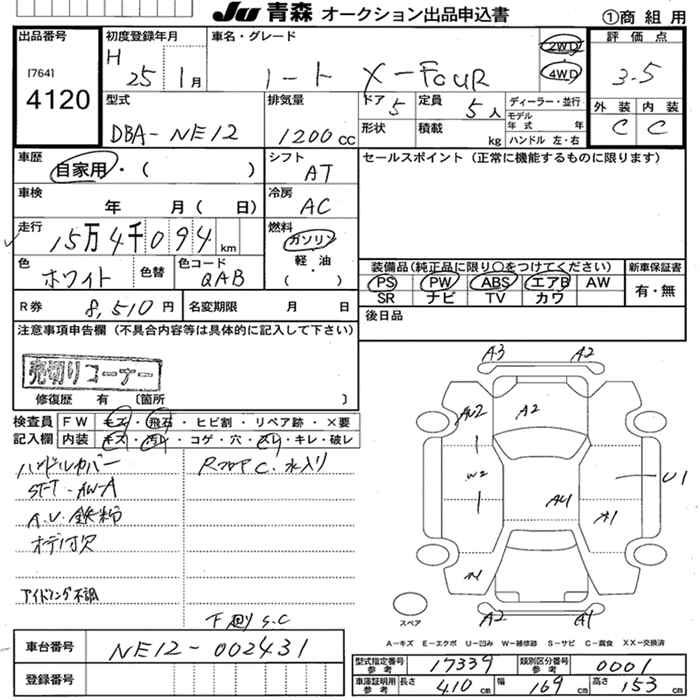 JU 青森 オークション出品申込書
①商組用
出品番号
(764)
4120
初度登録年月
H 25 1月
車名・グレード
ノート X-FOUR
2WD
4WD
評価点
3.5
外装 内装
C C
型式
DBA-NE12
排気量
1200cc
ドア 5
定員 5人
形状
積載 kg
ディーラー・並行
モデル年式 年
ハンドル 左・右
車歴
自家用・( )
シフト
AT
セールスポイント(正常に機能するものに限ります)
車検
年 月( 日)
冷房
AC
走行
15万4千094km
燃料
ガソリン
軽油
・
( )
色
ホワイト
色替
色コード
QAB
装備品(純正品に限り○をつけてください)
PS PW ABS エアB AW
SR ナビ TV カワ
新車保証書
有・無
R券
8,510円
名変期限 月 日
後日品
注意事項申告欄(不具合内容等は具体的に記入して下さい)
売切りコーナー
修復歴 有 〔箇所 〕
検査員記入欄
FW キズ・飛石・ヒビ割・リペア跡・×要
内装 キズ・汚レ・コゲ・穴・スレ・キレ・破レ
ハンドルカバー
ST-T・AW-A
A.U.鉄粉
オデ付欠
アイドリング不調
RフロアC.水入り
下廻りS.C
A3 A2
AU2
A2
W2
AU
U1
A1
A2 A1
スペア
A-キズ E-エクボ U-凹み W-補修跡 S-サビ C-腐食 XX-交換済
車台番号
NE12-002431
登録番号
型式指定番号参考
17339
類別区分番号参考
0001
車庫証明用参考
長さ 410cm
幅 169cm
高さ 153cm